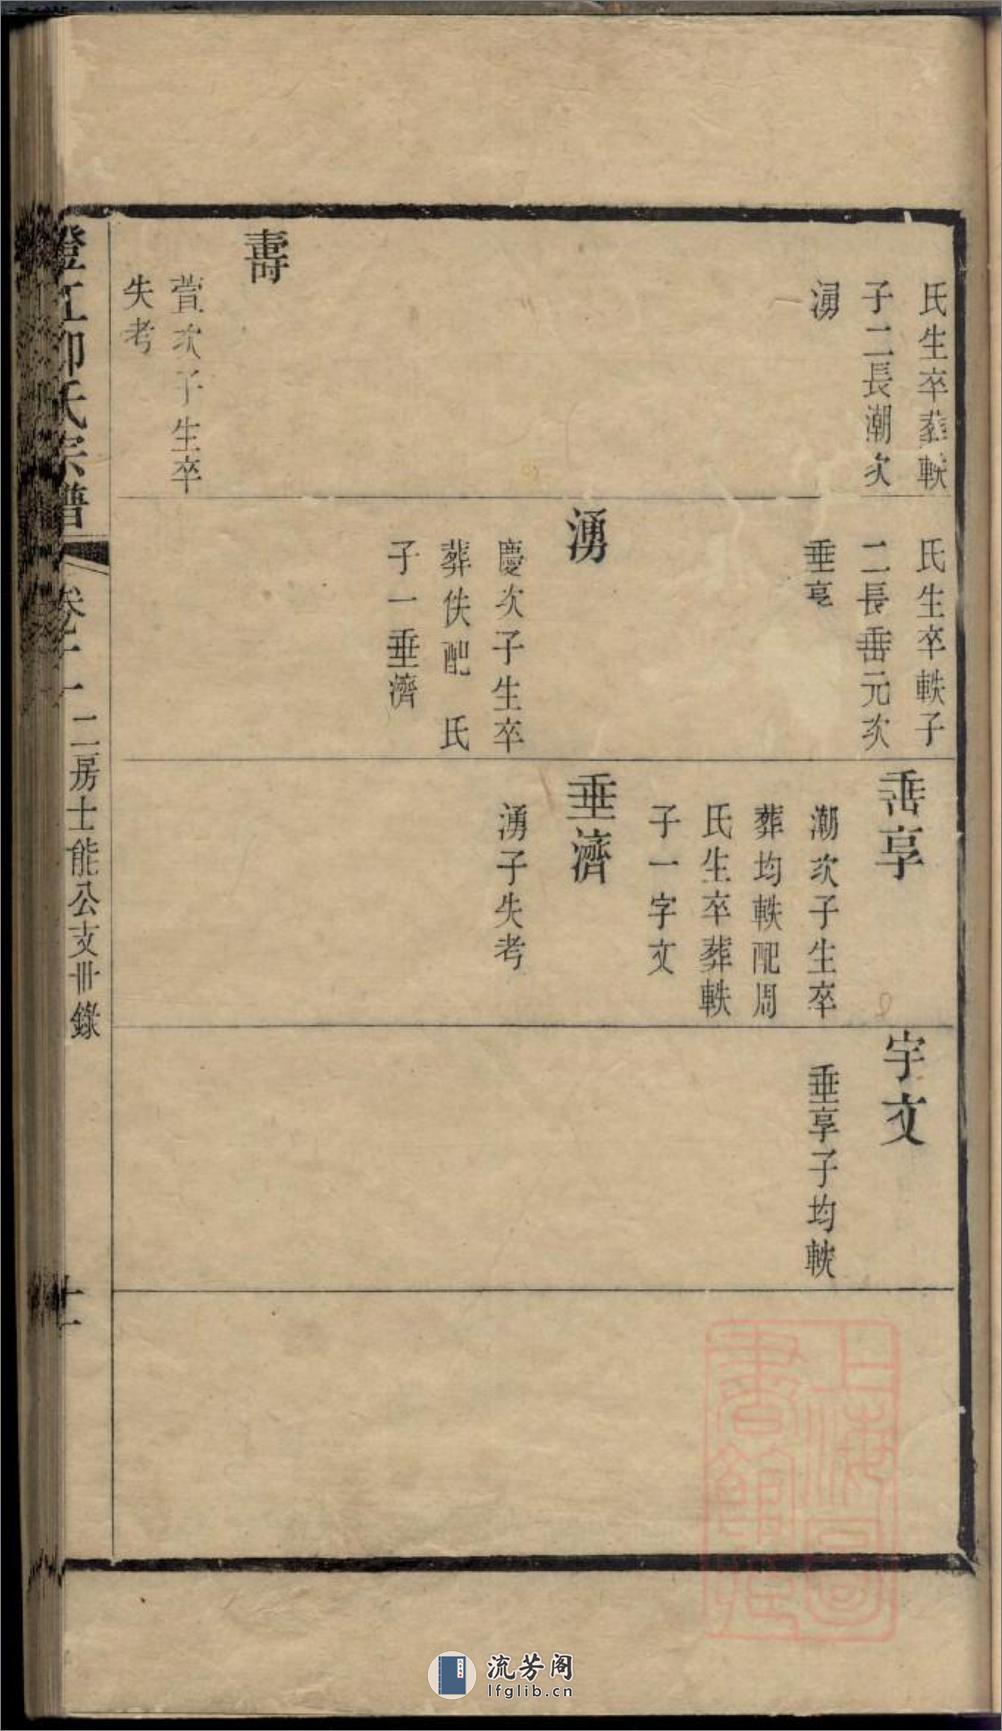 氏生卒葬軼
子二長潮次
湧
壽
萱次子生卒
失考
氏生卒軼子
二長垂元次
垂亨
湧
慶次子生卒
葬佚配　氏
子一垂濟
垂享
潮次子生卒
葬均軼配周
氏生卒葬軼
子一字文
垂濟
湧子失考
宇文
垂享子均軼
江柳氏宗譜
卷十一
二房士能公支卌錄
十一
上海圖書館藏
流芳阁
lfglib.cn